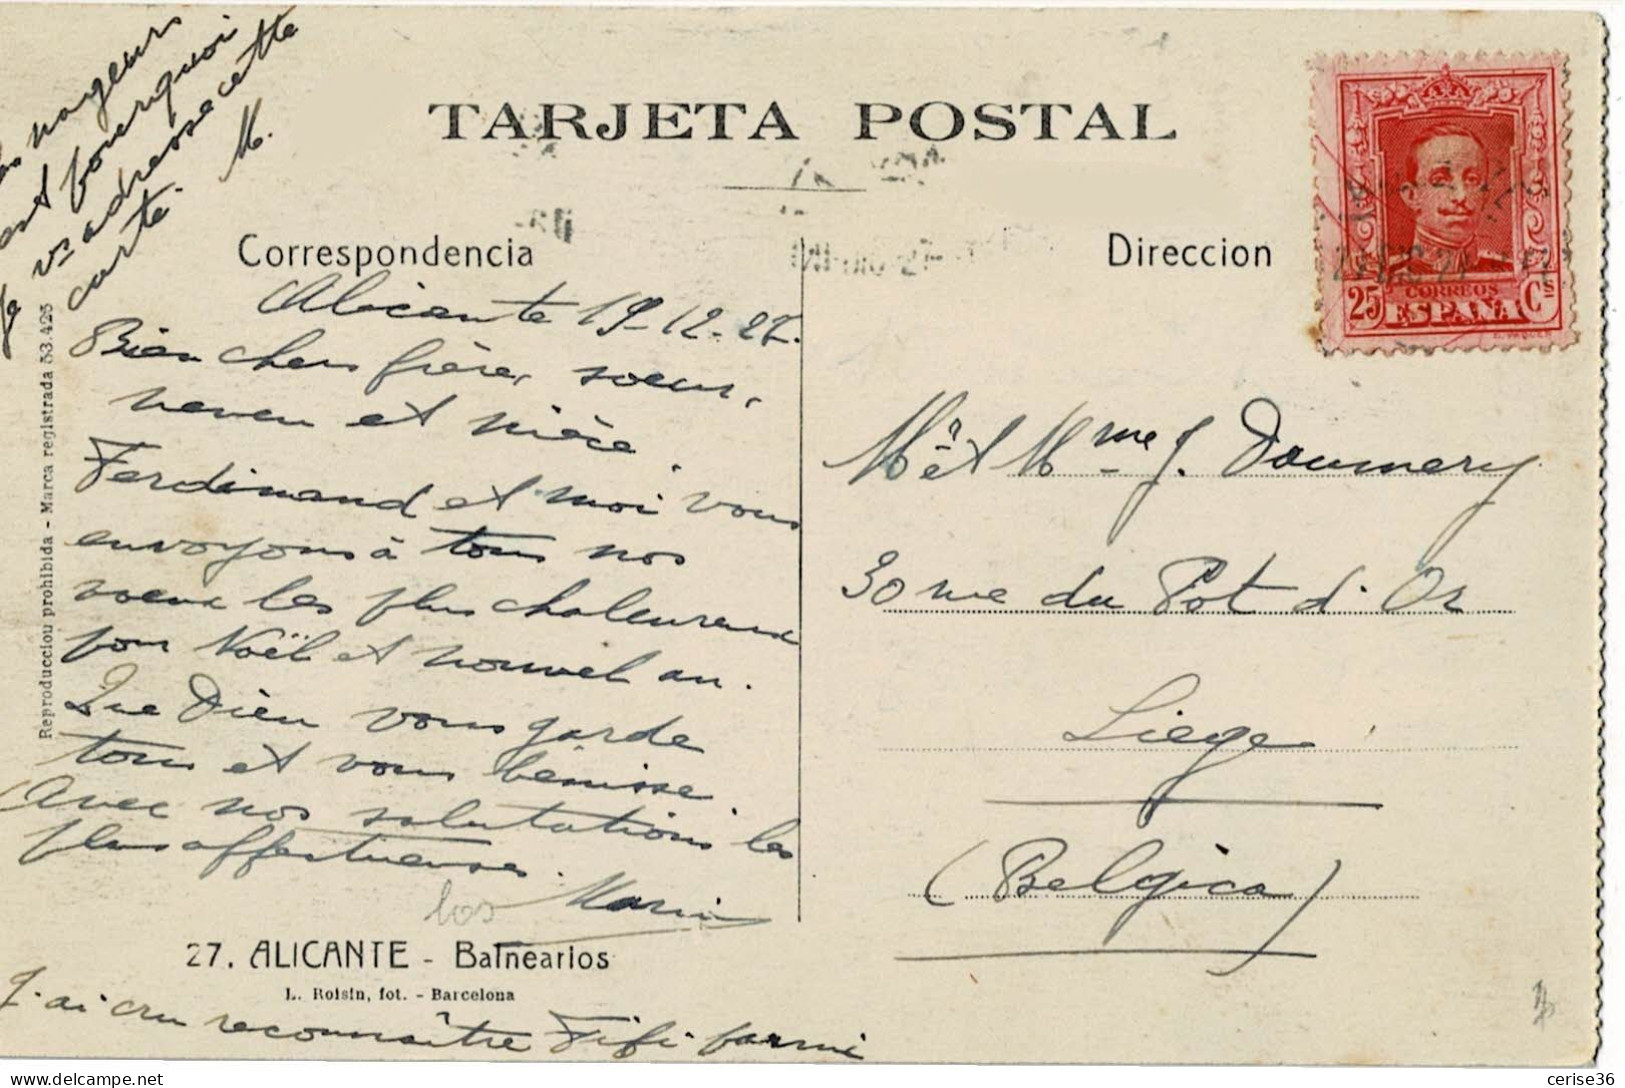 TARJETA POSTAL
Correspondencia
Direccion
Alicante 19-12-27.
Bien chers frère, soeur,
neveu et nièce,
Ferdinand et moi vous
envoyons à tous nos
voeux les plus chaleureux
pour Noël et nouvel an.
Que Dieu vous garde
tous et vous bénisse.
Avec nos salutations les
plus affectueuses.
Maria
los
27. ALICANTE - Balnearios
L. Roisin, fot. - Barcelona
J'ai cru reconnaître Fifi parmi
les nageurs
c'est pourquoi
je vs adresse cette
carte. M.
Reproducciou prohibida - Marca registrada 53.425
25 CORREOS Cs
ESPAÑA
Mr et Mme J. Doumery
30 rue du Pot d'Or
Liege
(Belgica)
cerise36